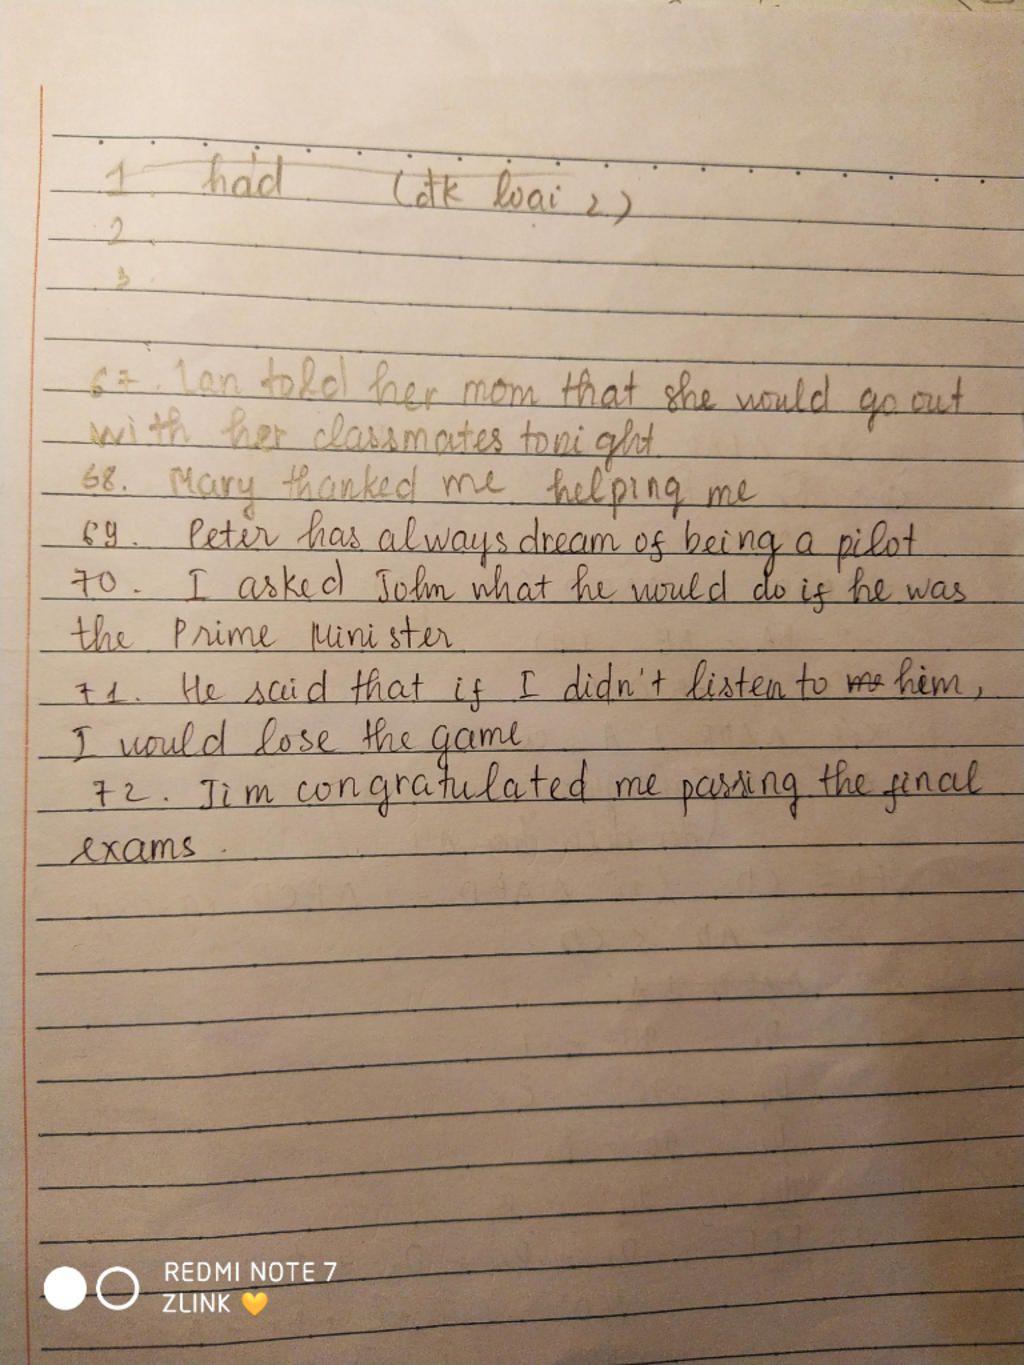 1 had (đk loại 2)
2
3
67. Lan told her mom that she would go out
with her classmates tonight
68. Mary thanked me helping me
69. Peter has always dream of being a pilot
70. I asked John what he would do if he was
the Prime Minister
71. He said that if I didn't listen to me him,
I would lose the game
72. Jim congratulated me passing the final
exams.
REDMI NOTE 7
ZLINK 💛